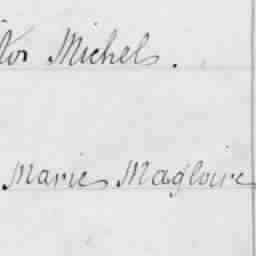 Michels.
Marie Magloire